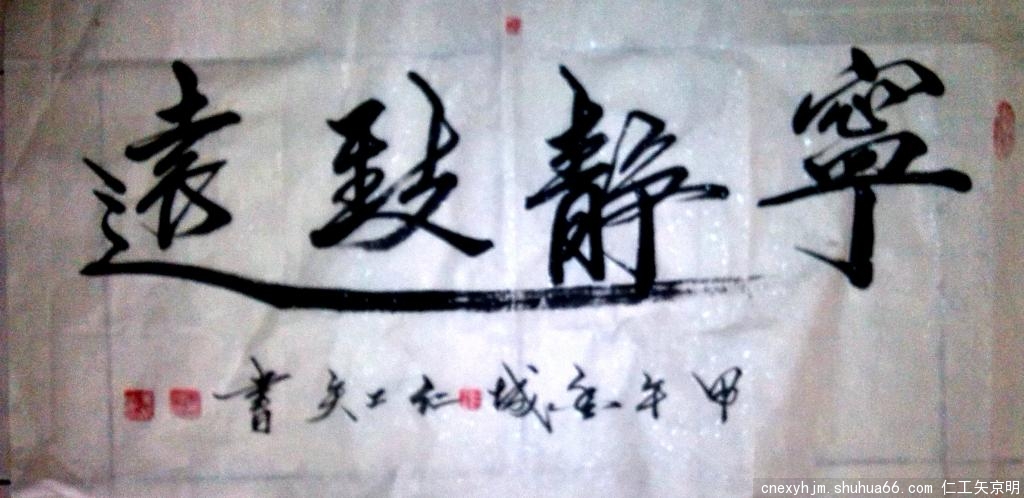 寧靜致遠
甲午金城仁工矢書
cnexyhjm.shuhua66.com 仁工矢京明